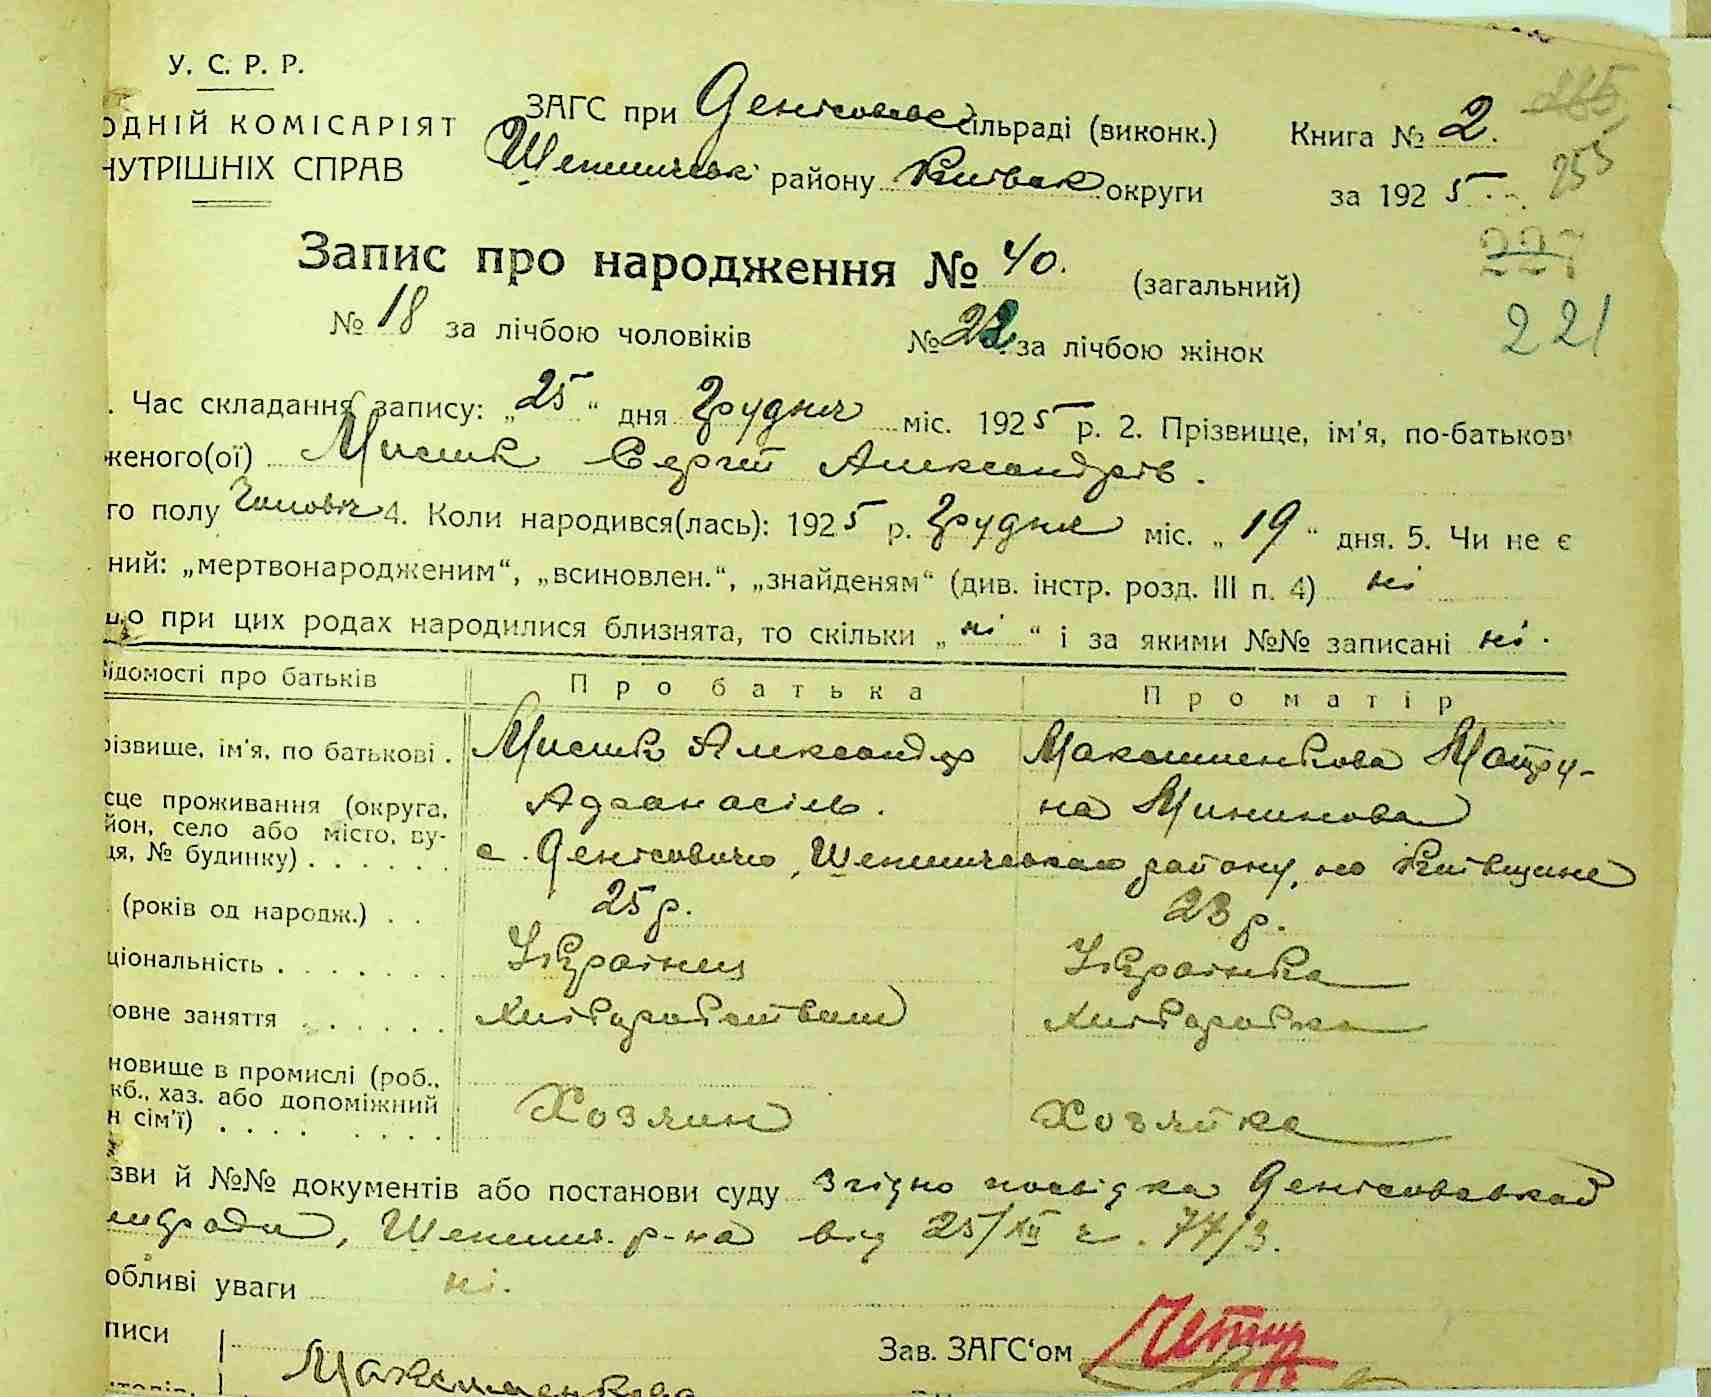 У. С. Р. Р.
ОДНІЙ КОМІСАРІЯТ
НУТРІШНІХ СПРАВ
ЗАГС при Денісовськ ільраді (виконк.)
району Київськ округи
Книга № 2.
за 1925
255
227
221
Запис про народження № 40. (загальний)
№ 18 за лічбою чоловіків № 22 за лічбою жінок
. Час складання запису: „25“ дня Грудня міс. 1925 р. 2. Прізвище, ім'я, по-батькові
женого(ої) Мисик Сергій Александрів.
го полу Чоловіч 4. Коли народився(лась): 1925 р. Грудня міс. „19“ дня. 5. Чи не є
ний: „мертвонародженим“, „всиновлен.“, „знайденям“ (див. інстр. розд. III п. 4) ні
що при цих родах народилися близнята, то скільки „ні“ і за якими №№ записані ні.
ідомості про батьків Про батька Про матір
різвище, ім'я, по батькові . Мисик Александр Макаменкова Мотру-
Афанасієв. на
сце проживання (округа,
йон, село або місто, ву-
ця, № будинку) . . . . . . с. Денісовичо, району, на Київщине
(років од народж.) . . 25 р. 23 р.
ціональність . . . . . . . Українец Українка
овне заняття . . . . . . Хліборобка
новище в промислі (роб.,
кб., хаз. або допоміжний
н сім'ї) . . . . . . . . . Хозяин Хозяйка
зви й №№ документів або постанови суду Згідно посвідка Денісовської
р-на від 25/XII ч. 77/3.
обливі уваги ні.
писи
Зав. ЗАГС'ом